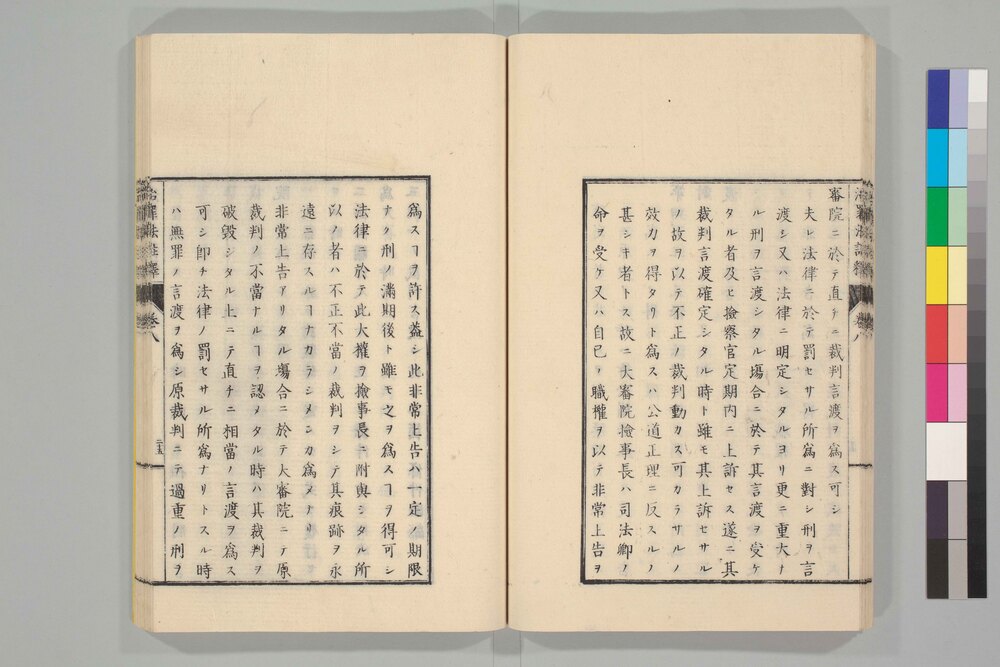 審院ニ於テ直チニ裁判言渡ヲ爲ス可シ
夫レ法律ニ於テ罰セサル所爲ニ對シ刑ヲ言
渡シ又ハ法律ニ明定シタルヨリ更ニ重大ナ
ル刑ヲ言渡シタル塲合ニ於テ其言渡ヲ受ケ
タル者及ヒ撿察官定期内ニ上訴セス遂ニ其
裁判言渡確定シタル時ト雖モ其上訴セサル
ノ故ヲ以テ不正ノ裁判動カス可カラサルノ
效力ヲ得タリト爲スハ公道正理ニ反スルノ
甚シキ者トス故ニ大審院撿事長ハ司法卿ノ
命ヲ受ケ又ハ自己ノ職權ヲ以テ非常上告ヲ
爲スヿヲ許ス蓋シ此非常上告ハ一定ノ期限
ナク刑ノ滿期後ト雖モ之ヲ爲スヿヲ得可シ
法律ニ於テ此大權ヲ撿事長ニ附與シタル所
以ノ者ハ不正不當ノ裁判ヲシテ其痕跡ヲ永
遠ニ存スルヿナカラシメンカ爲メナリ
非常上告アリタル塲合ニ於テ大審院ニテ原
裁判ノ不當ナルヿヲ認メタル時ハ其裁判ヲ
破毀シタル上ニテ直チニ相當ノ言渡ヲ爲ス
可シ卽チ法律ノ罰セサル所爲ナリトスル時
ハ無罪ノ言渡ヲ爲シ原裁判ニテ過重ノ刑ヲ
治罪法註釋
卷八
二十五